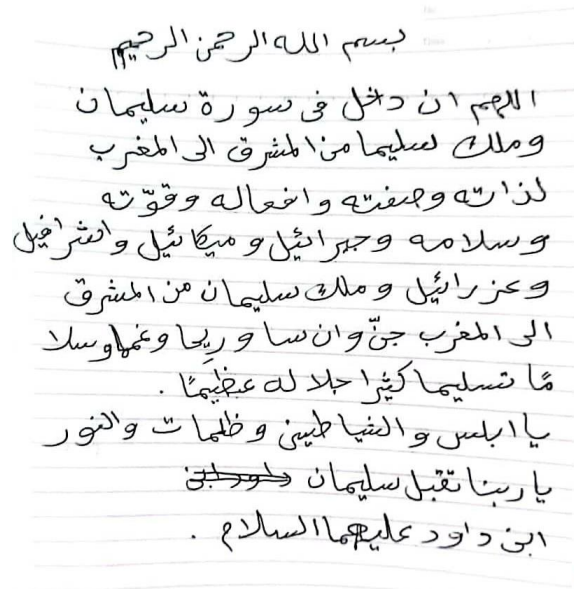 بسم الله الرحمن الرحيم
اللهم ان داخل فى سورة سليمان
وملك سليما من المشرق الى المغرب
لذاته وصفته وافعاله وقوّته
وسلامه وجبرائيل وميكائيل واشرافيل
وعزرائيل وملك سليمان من المشرق
الى المغرب جنّ وان سا وريحا وسلا
مًا تسليما كثيرا جلاله عظيمًا .
يا ابلس والشياطين وظلمات والنور
يا ربنا تقبل سليمان
ابن داود عليهما السلام .